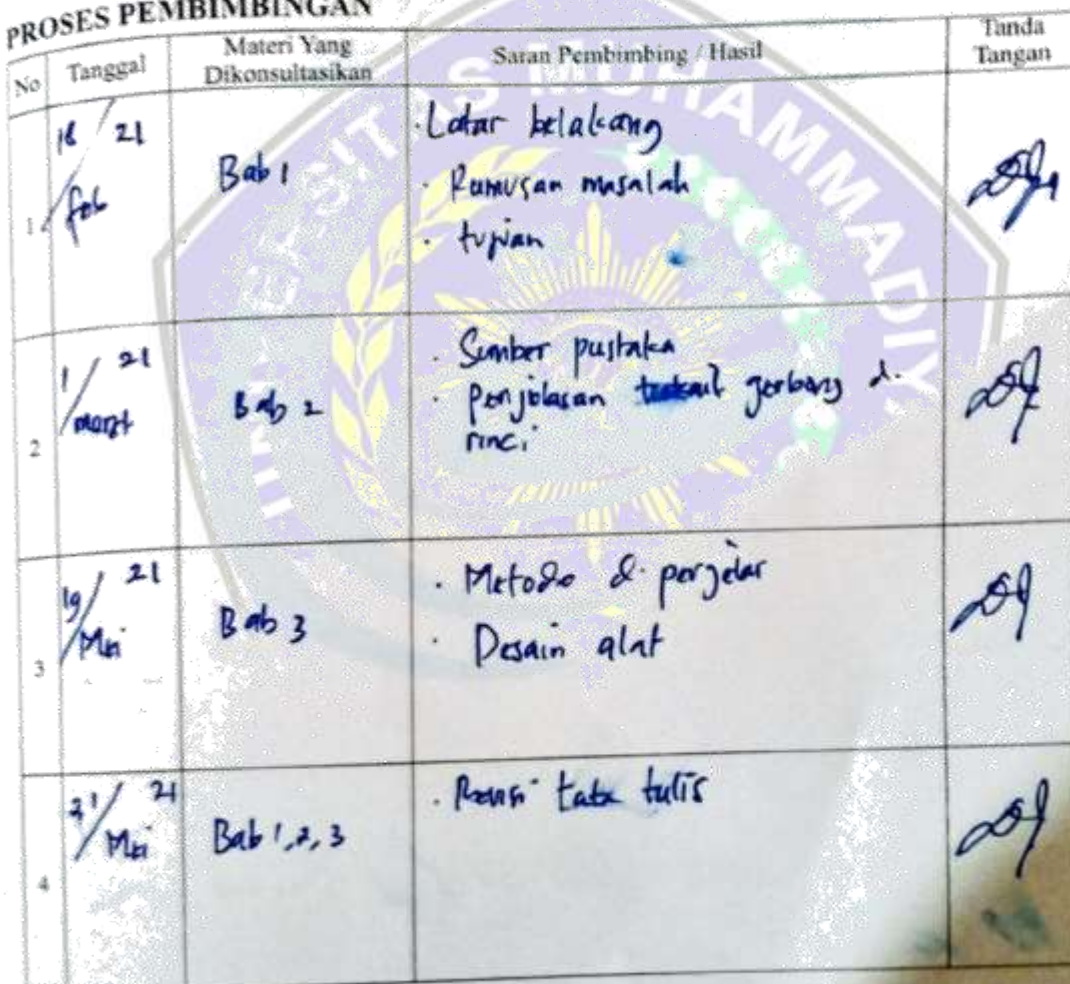 PROSES PEMBIMBINGAN
No Tanggal Materi Yang Dikonsultasikan Saran Pembimbing / Hasil Tanda Tangan
UNIVERSITAS MUHAMMADIY
1
18 / feb 21
Bab 1
· Latar belakang
· Rumusan masalah
· tujuan
2
1 / maret 21
Bab 2
· Sumber pustaka
· Penjelasan gerbang d.
rinci
3
19 / Mei 21
Bab 3
· Metode d. perjelas
· Desain alat
4
31 / Mei 21
Bab 1, 2, 3
· Revisi tata tulis